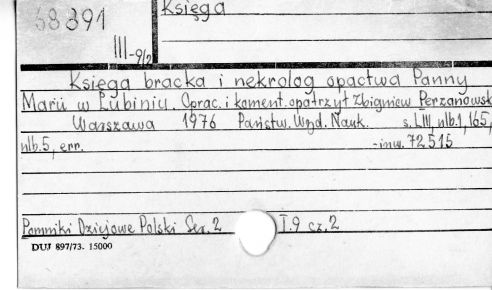 68391
Księga
III-9/2
Księga bracka i nekrolog opactwa Panny
Marii w Lubiniu. Oprac. i koment. opatrzył Zbigniew Perzanowsk
Warszawa 1976 Państw. Wyd. Nauk. s. LIII, nlb.1, 165,
nlb. 5, err. -inw. 72515
Pomniki Dziejowe Polski Ser. 2 T. 9 cz. 2
DUJ 897/73. 15000